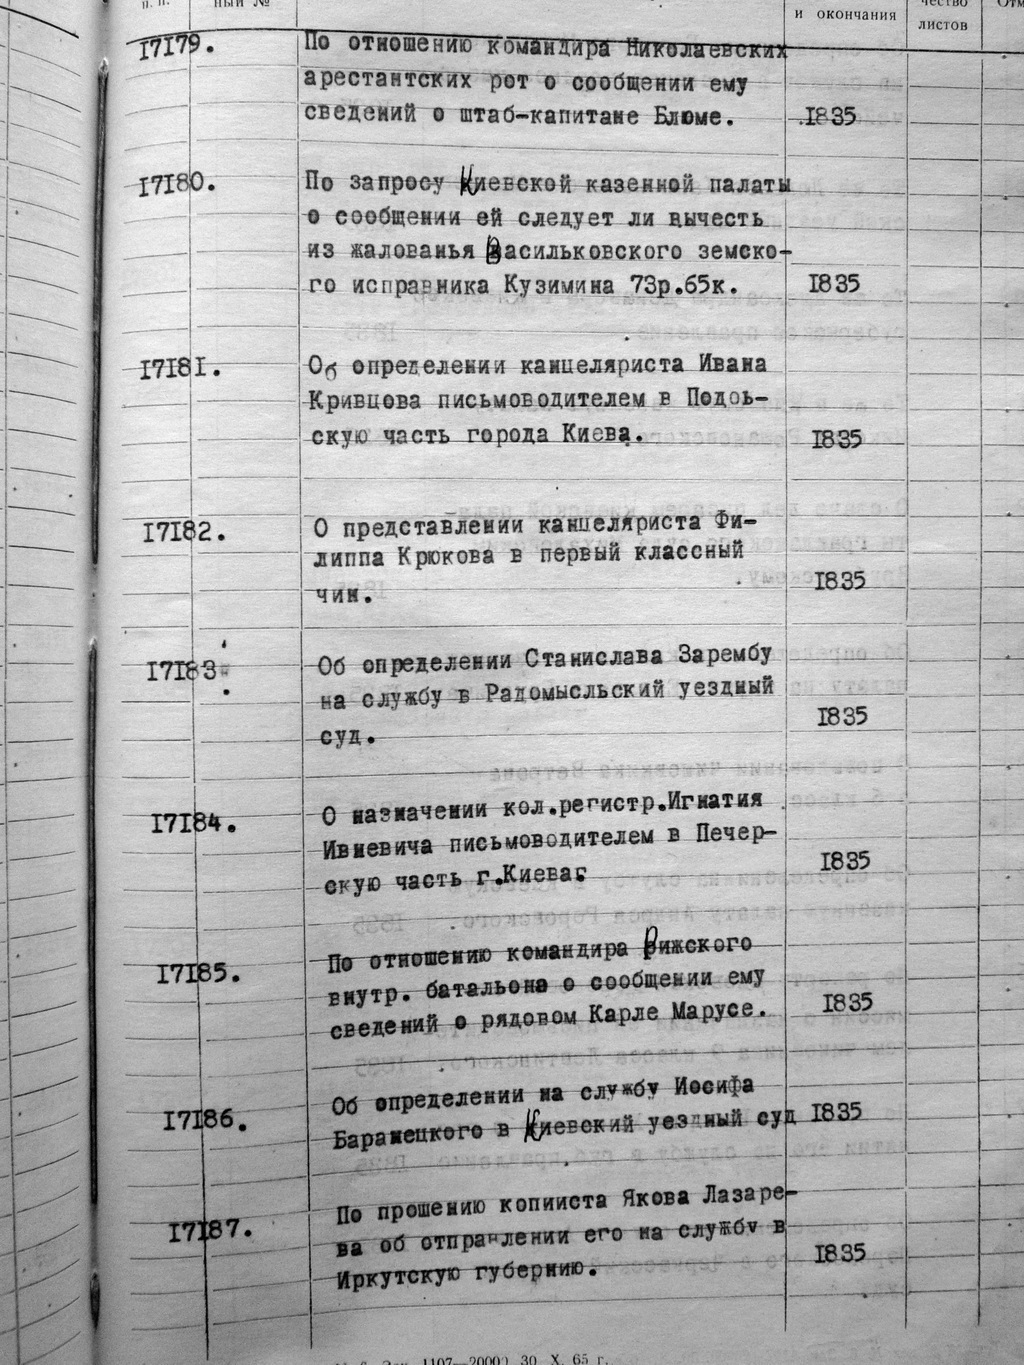 п. п.
ный №
и окончания
чество
листов
Отм
17179.
По отношению командира Николаевских
арестантских рот о сообщении ему
сведений о штаб-капитане Блюме. 1835
17180.
По запросу Киевской казенной палаты
о сообщении ей следует ли вычесть
из жалованья Васильковского земско-
го исправника Кузимина 73р.65к. 1835
17181.
Об определении канцеляриста Ивана
Кривцова письмоводителем в Подоь-
скую часть города Киева. 1835
17182.
О представлении канцеляриста Фи-
липпа Крюкова в первый классный
чин. 1835
17183
Об определении Станислава Зарембу
на службу в Радомысльский уездный
суд. 1835
17184.
О назначении кол.регистр.Игнатия
Ивневича письмоводителем в Печер-
скую часть г.Киева. 1835
17185.
По отношению командира Рижского
внутр. батальона о сообщении ему
сведений о рядовом Карле Марусе. 1835
17186.
Об определении на службу Иосифа
Баранецкого в Киевский уездный суд 1835
17187.
По прошению копииста Якова Лазаре-
ва об отправлении его на службу в
Иркутскую губернию. 1835
1107—2000) 30. X. 65 г.